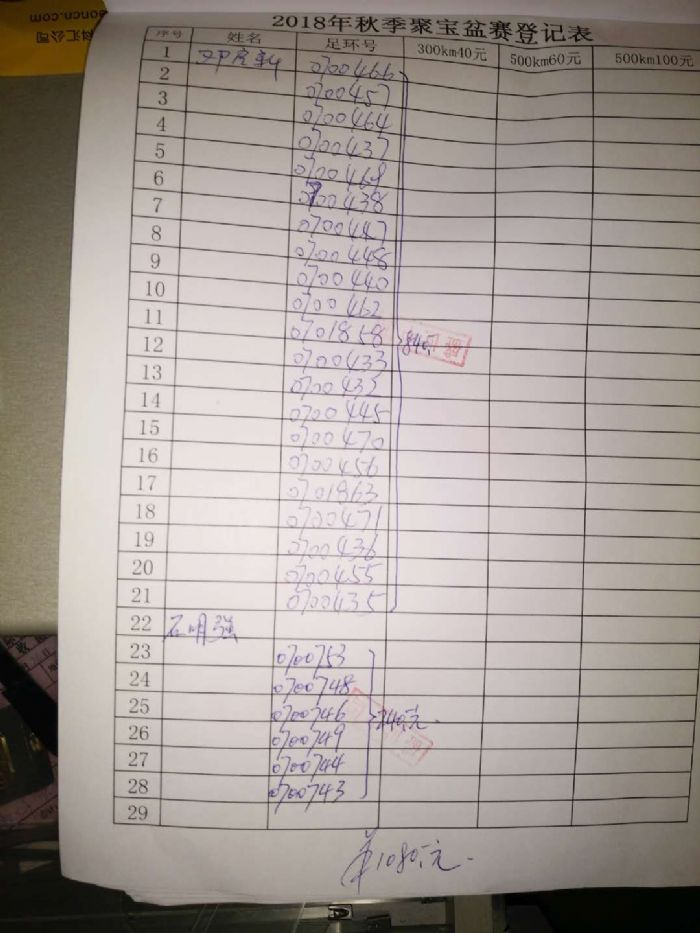 oncn.com
科汇公司
2018年秋季聚宝盆赛登记表
序号 姓名 足环号 300km40元 500km60元 500km100元
1 0700466
2 0700457
3 0700464
4 0700437
5 0700469
6 0700438
7 0700447
8 0700448
9 0700440
10 0700462
11 0701858
12 0700433 840元
13 0700432
14 0700445
15 0700470
16 0700456
17 0701863
18 0700471
19 0700436
20 0700455
21 0700435
22 石明强
23 0700753
24 0700748
25 0700746 240元
26 0700749
27 0700744
28 0700743
29
共1080元